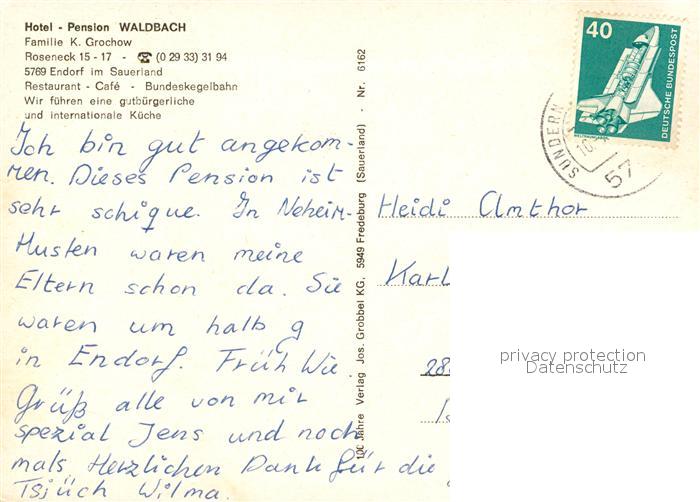 Hotel - Pension WALDBACH
Familie K. Grochow
Roseneck 15 - 17 - ☎ (0 29 33) 31 94
5769 Endorf im Sauerland
Restaurant - Café - Bundeskegelbahn
Wir führen eine gutbürgerliche
und internationale Küche
Ich bin gut angekom-
men. Dieses Pension ist
sehr schique. In Neheim-
Husten waren meine
Eltern schon da. Sie
waren um halb 9
in Endorf. Früh Wie.
Grüß alle von mir
spezial Jens und noch
mals Herzlichen Dank für die
Tsjüch Wilma.
100 Jahre Verlag Jos. Grobbel KG, 5949 Fredeburg (Sauerland) - Nr. 6162
40
DEUTSCHE BUNDESPOST
SUNDERN
57
Heidi Amthor
Karl
28
privacy protection
Datenschutz